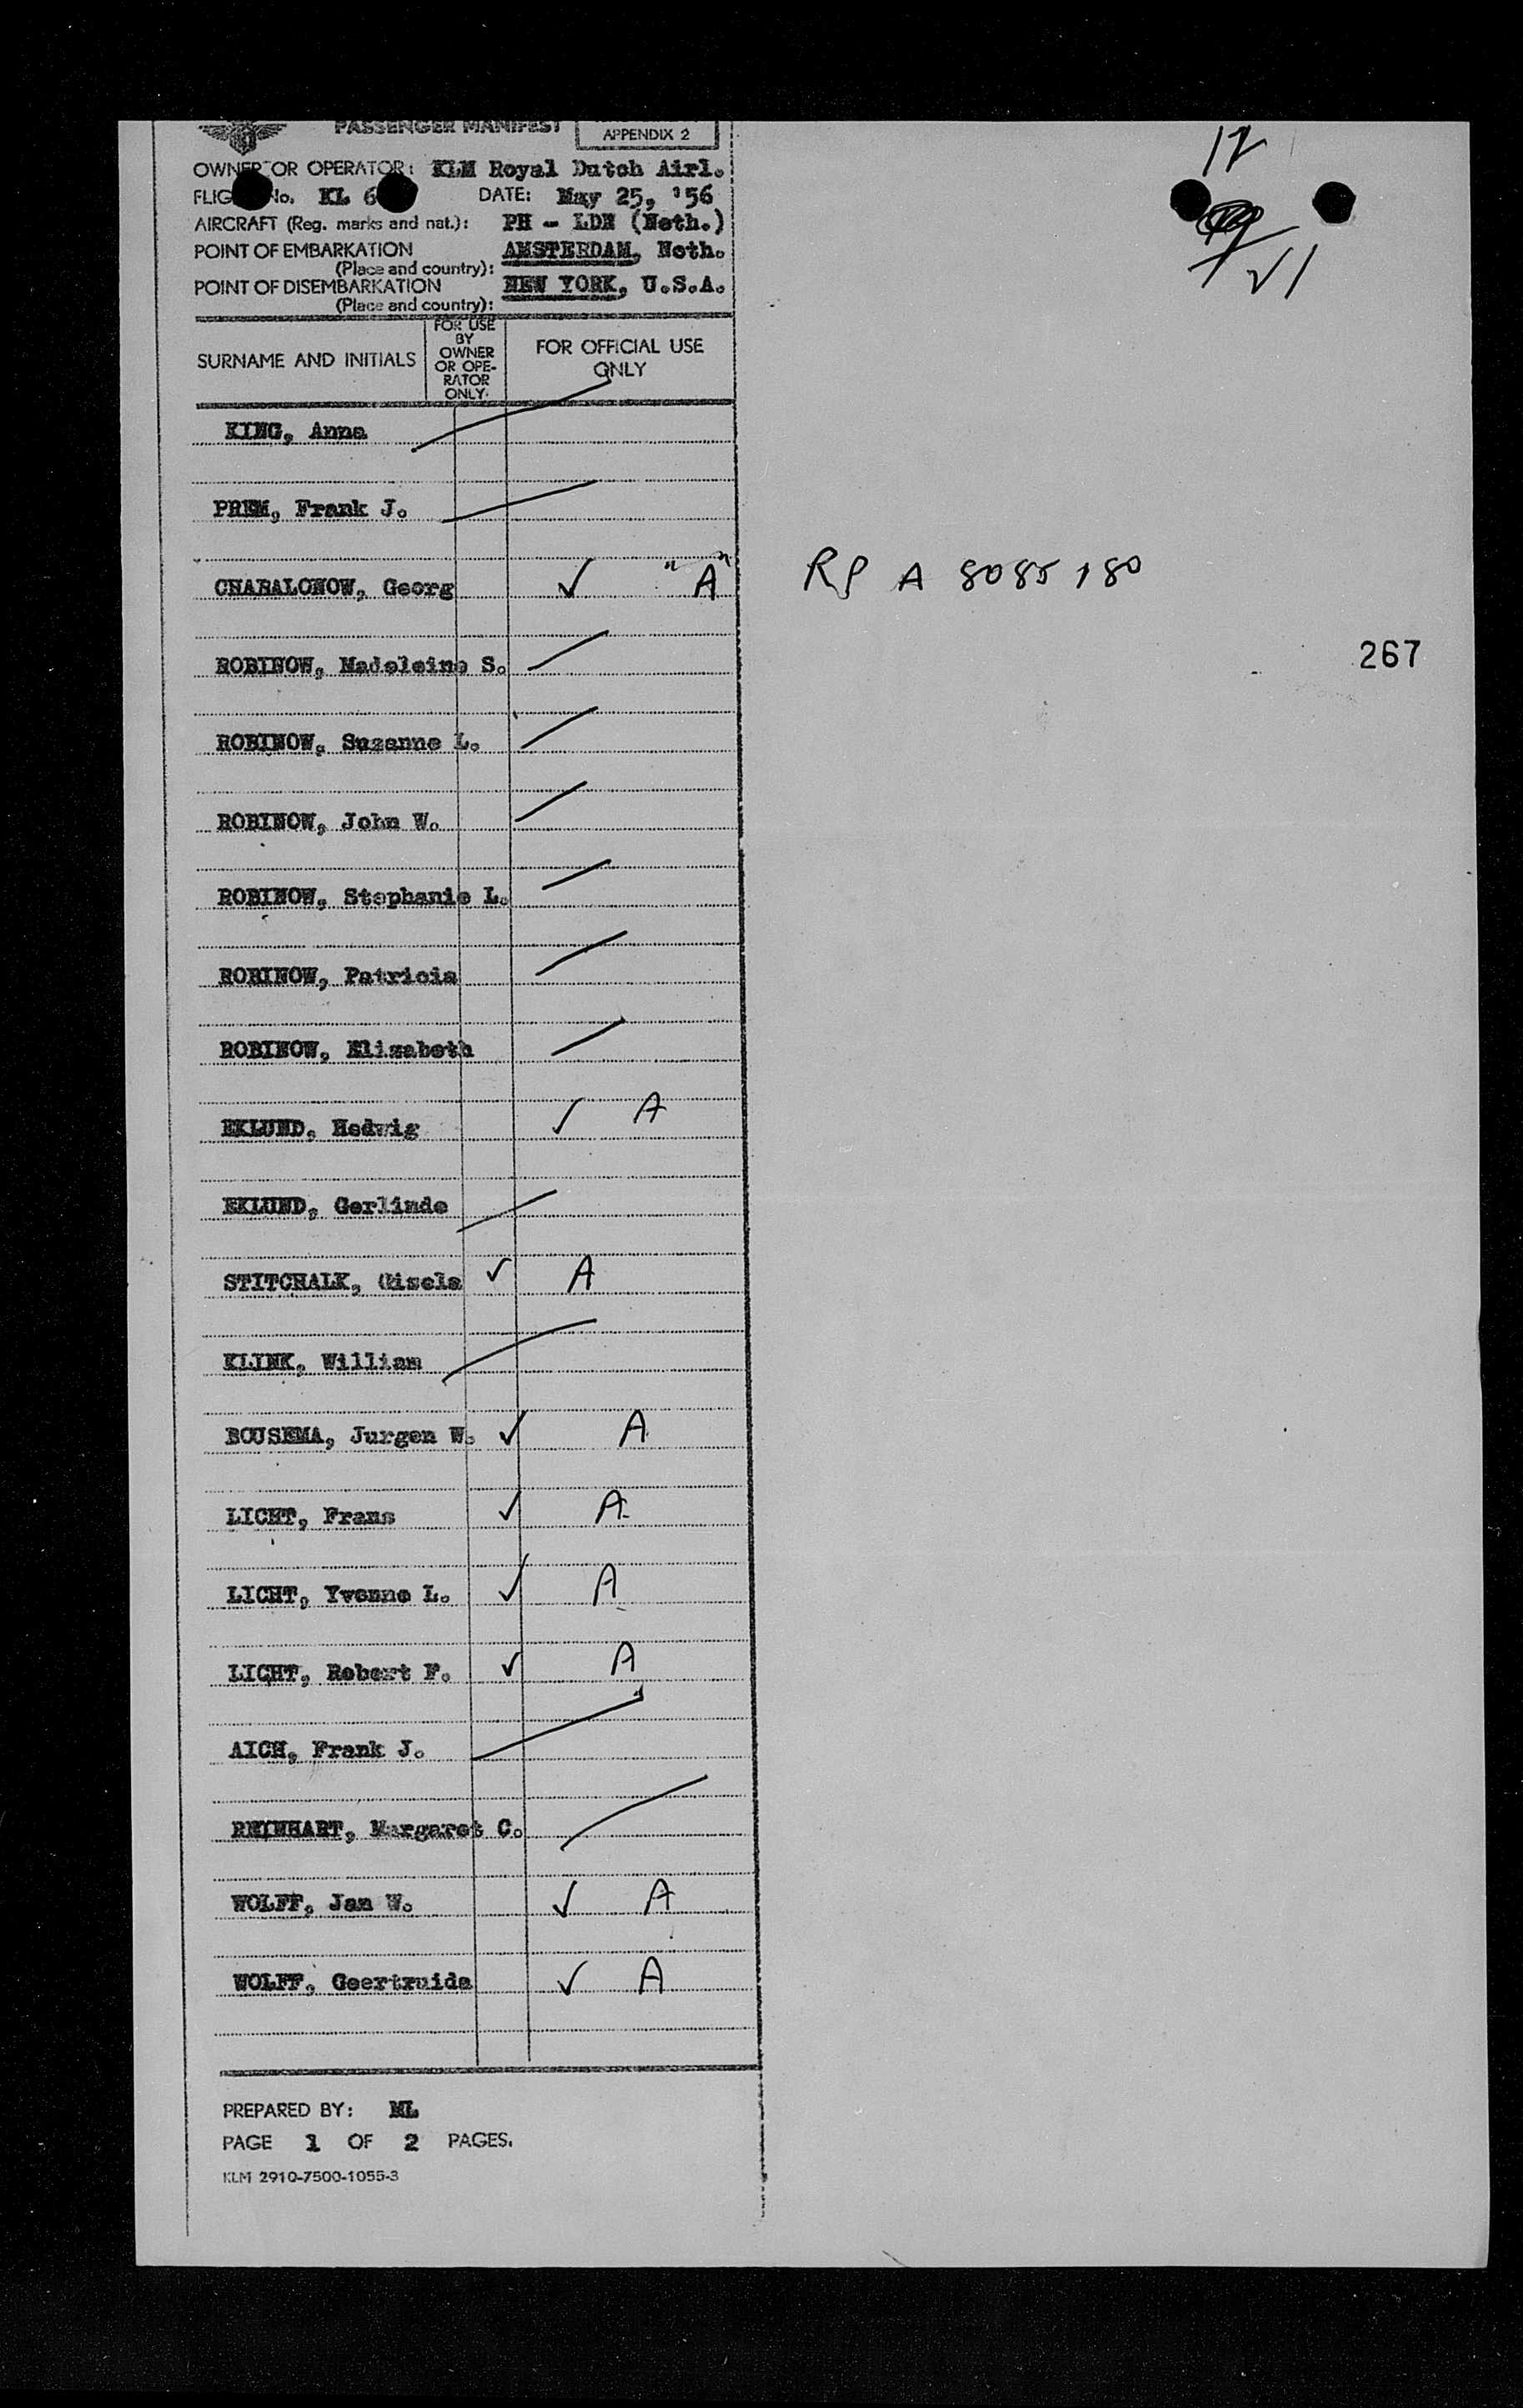 PASSENGER MANIFEST
APPENDIX 2
OWNER OR OPERATOR: KLM Royal Dutch Airl.
No. KL 6 DATE: May 25, '56
AIRCRAFT (Reg. marks and nat.): PH - LDN (Neth.)
POINT OF EMBARKATION AMSTERDAM, Neth.
(Place and country):
POINT OF DISEMBARKATION NEW YORK, U.S.A.
(Place and country):
SURNAME AND INITIALS
FOR USE
BY
OWNER
OR OPE-
RATOR
ONLY.
FOR OFFICIAL USE
ONLY
17
21
KING, Anna
PREM, Frank J.
CHABALONOW, Georg ✓ "A" RP A 8085180
267
ROBINOW, Madeleine S.
ROBINOW, Suzanne L.
ROBINOW, John W.
ROBINOW, Stephanie L.
ROBINOW, Patricia
ROBINOW, Elizabeth
EKLUND, Hedwig ✓ A
EKLUND, Gerlinde
STITCHALK, Gisela ✓ A
KLINK, William
BOUSEMA, Jurgen W. ✓ A
LICHT, Frans ✓ A
LICHT, Yvonne L. ✓ A
LICHT, Robert F. ✓ A
AICH, Frank J.
REINHART, Margaret C.
WOLFF, Jan W. ✓ A
WOLFF, Geertruida ✓ A
PREPARED BY: ML
PAGE 1 OF 2 PAGES.
KLM 2910-7500-1055-3